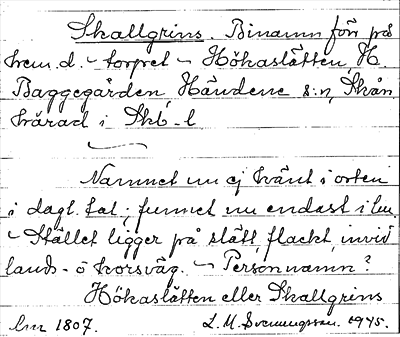 Skallgrins. Binamn förr på
hem.d. - torpet - Hökaslätten, H.
Baggegården, Händene s:n, Skån.
härad i Skb. l
Namnet nu ej känt i orten
i dagl. tal; funnet nu endast i lm.
- Stället ligger på slätt, flackt, invid
lands- o korsväg. - Personnamn?
Hökaslätten eller Skallgrins
lm 1807. L. M. Svenungsson. 1945.